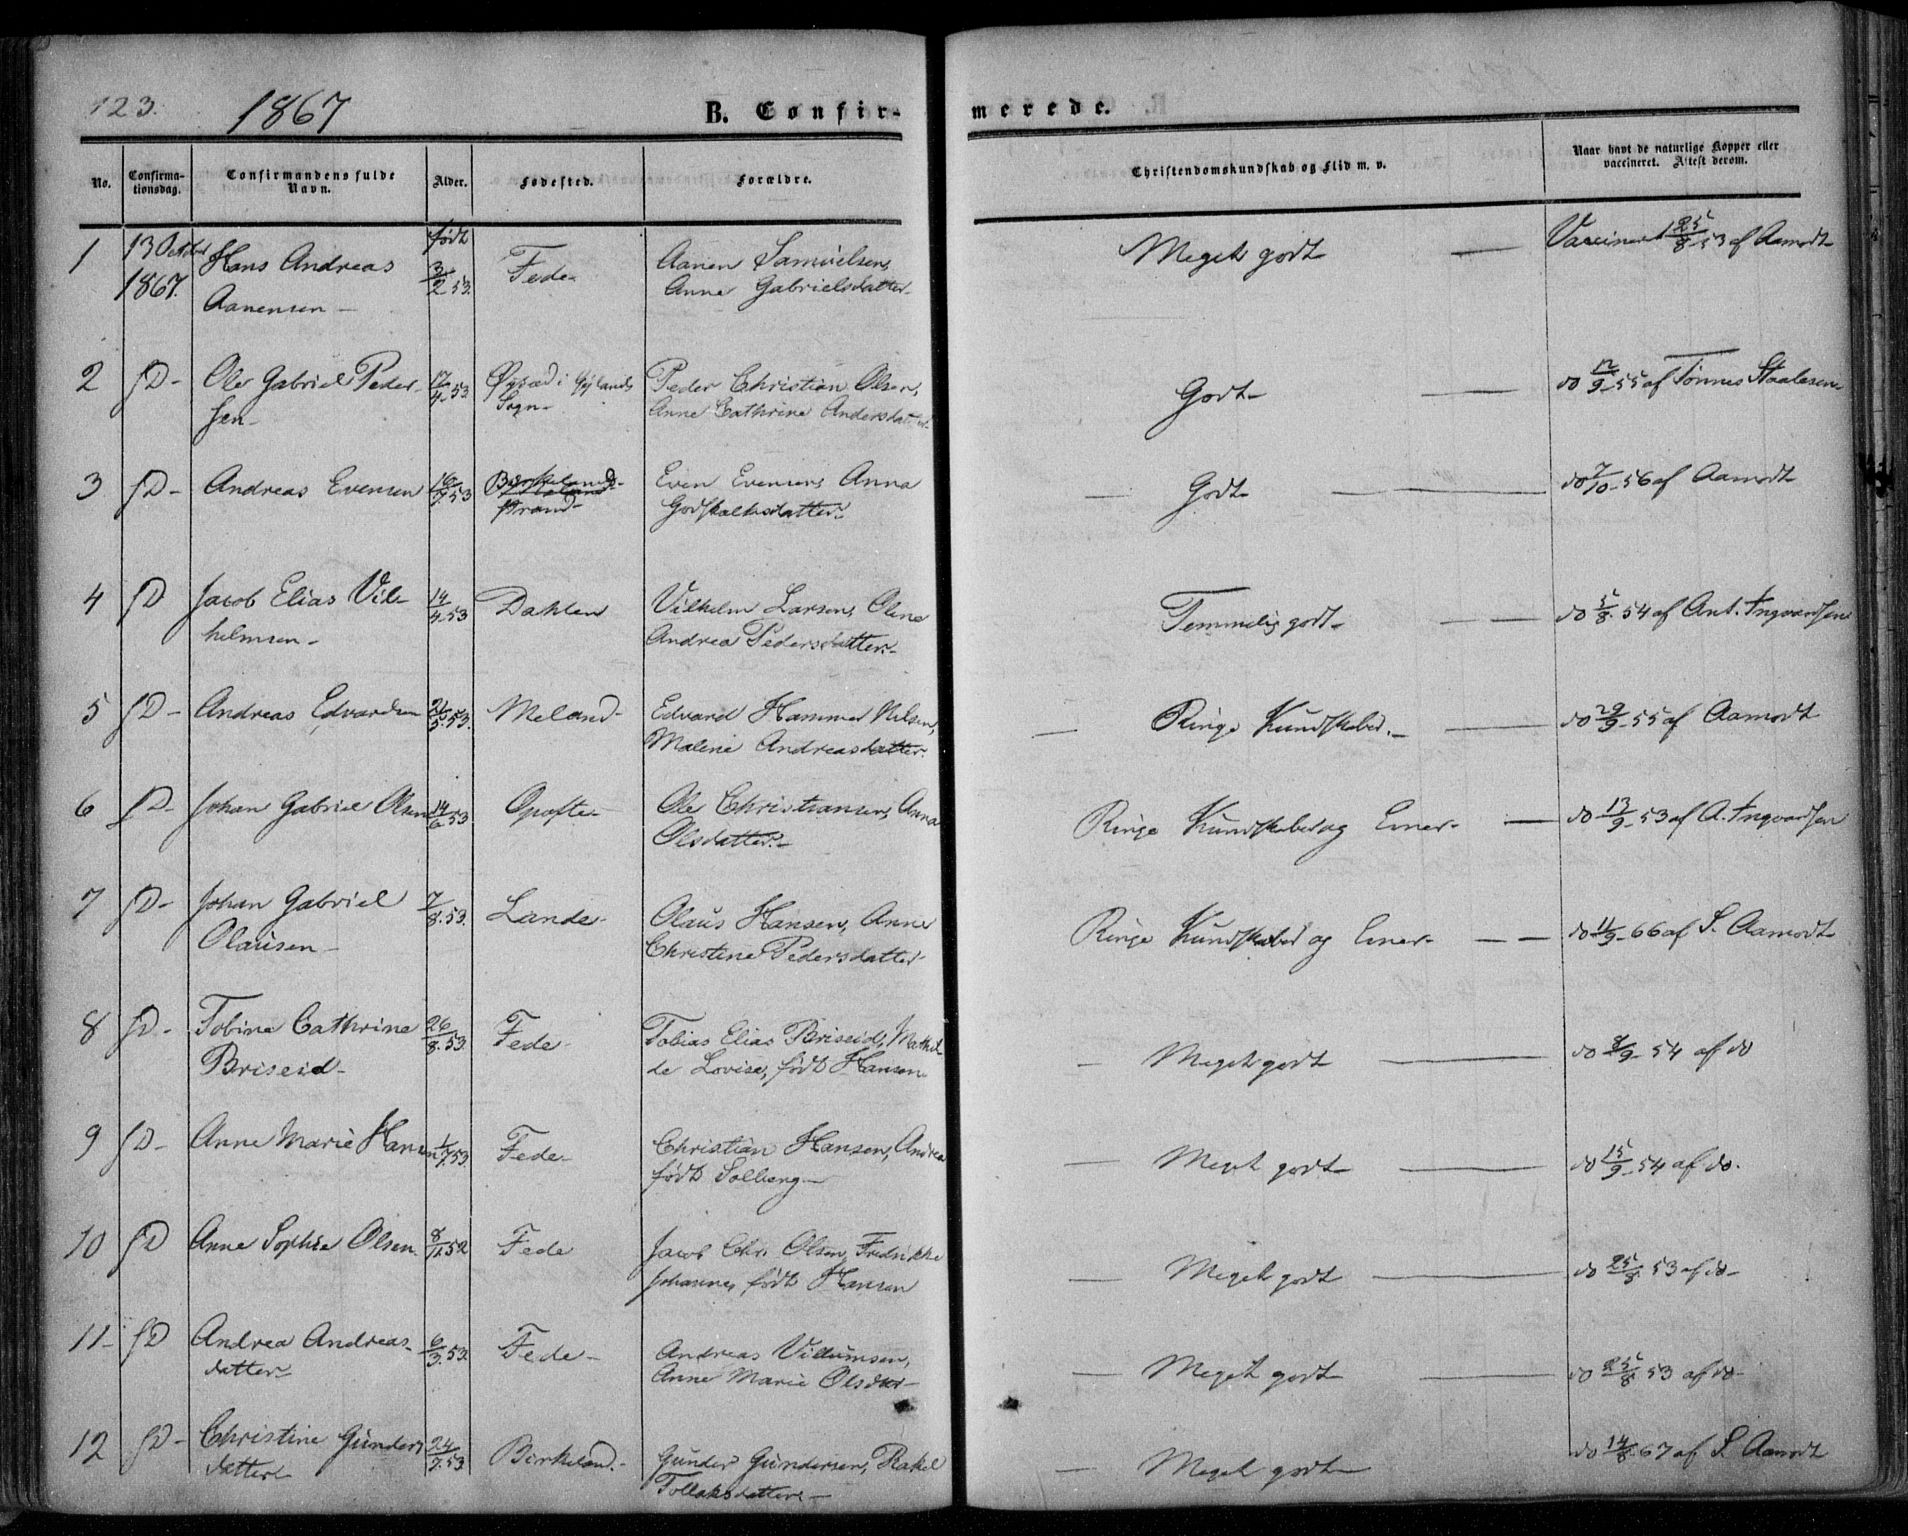 123.
1867
B. Confir-
merede.
No.
Confirma-
tionsdag.
Confirmandens fulde
Navn.
Alder.
Fødested.
Forældre.
Christendomskundskab og Flid m. v.
Naar havt de naturlige Kopper eller
vaccineret. Attest derom.
1 13 October 1867. Hans Andreas Aanensen – født 3/2 53. Fede- Aanen Samuelsen, Anne Gabrielsdatter- Meget godt – Vaccineret 25/8 53 af Aamodt
2 D- Ole Gabriel Peder- sen- 17/4 53 Gylands Sogn- Peder Christian Olsen, Anne Cathrine Andersdatter- Godt- – do 12/9 55 af Tønnes Staalesen
3 D- Andreas Evensen 16/7 53 Birkeland- Even Evensen, Anna Godskalksdatter- – Godt- – do 7/10 56 af Aamodt
4 D Jacob Elias Vil- helmsen- 14/4 53 Dahlen Vilhelm Larsen, Olene Andrea Pedersdatter- Temmelig godt- – do 5/8 54 af Ant. Ingvardsen
5 D- Andreas Edvardsen 21/5 53. Meland- Edvard Hammer Nilsen, Malene Andreasdatter- – Ringe Kundskaber. – do 29/9 55 af Aamodt
6 D- Johan Gabriel Olsen 14/6 53 Opofte- Ole Christiansen, Anna Olsdatter- Ringe Kundskaber og Evner- – do 13/9 53 af A. Ingvardsen
7 D- Johan Gabriel Olausen- 7/8 53. Lande- Olaus Hansen, Anne Christine Pedersdatter- Ringe Kundskaber og Evner- – – do 11/9 66 af S. Aamodt-
8 D- Tobine Cathrine Briseid- 26/8 53 Fede- Tobias Elias Briseid, Mathil- de Lovise, født Hansen – Meget godt – do 8/9 54 af do
9 D- Anne Marie Hansen 1/7 53 Fede- Christian Hansen, Andrea født Solberg- – Meget godt – do 15/9 54 af do.
10 D Anne Sophie Olsen 8/12 52 Fede Jacob Chr. Olsen, Fredrikke Johanne, født Hansen – Meget godt – do 25/8 53 af do-
11- D Andrea Andreas- datter- 6/3 53 Fede- Andreas Villumsen, Anne Marie Olsdtr- – Meget godt – do 25/8 53 af do-
12 D- Christine Gunders datter- 24/7 53 Birkeland.- Gunder Gundersen, Rakel Tollaksdatter- – Meget godt- do 14/8 67 af S. Aamodt